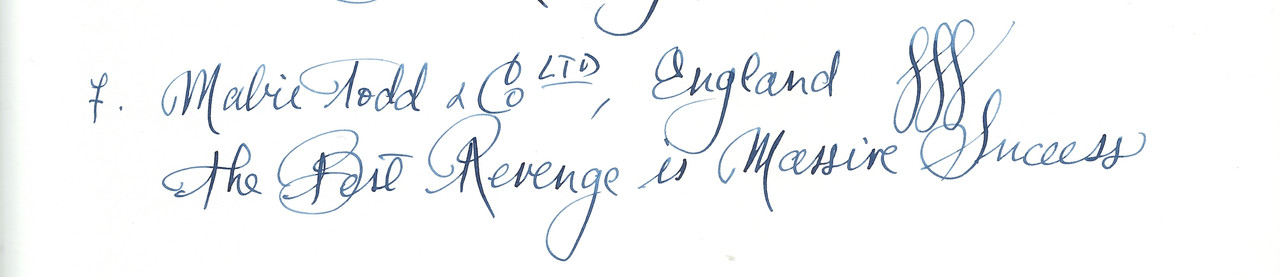 7. Mabie Todd & Co LTD, England
the Best Revenge is Massive Success